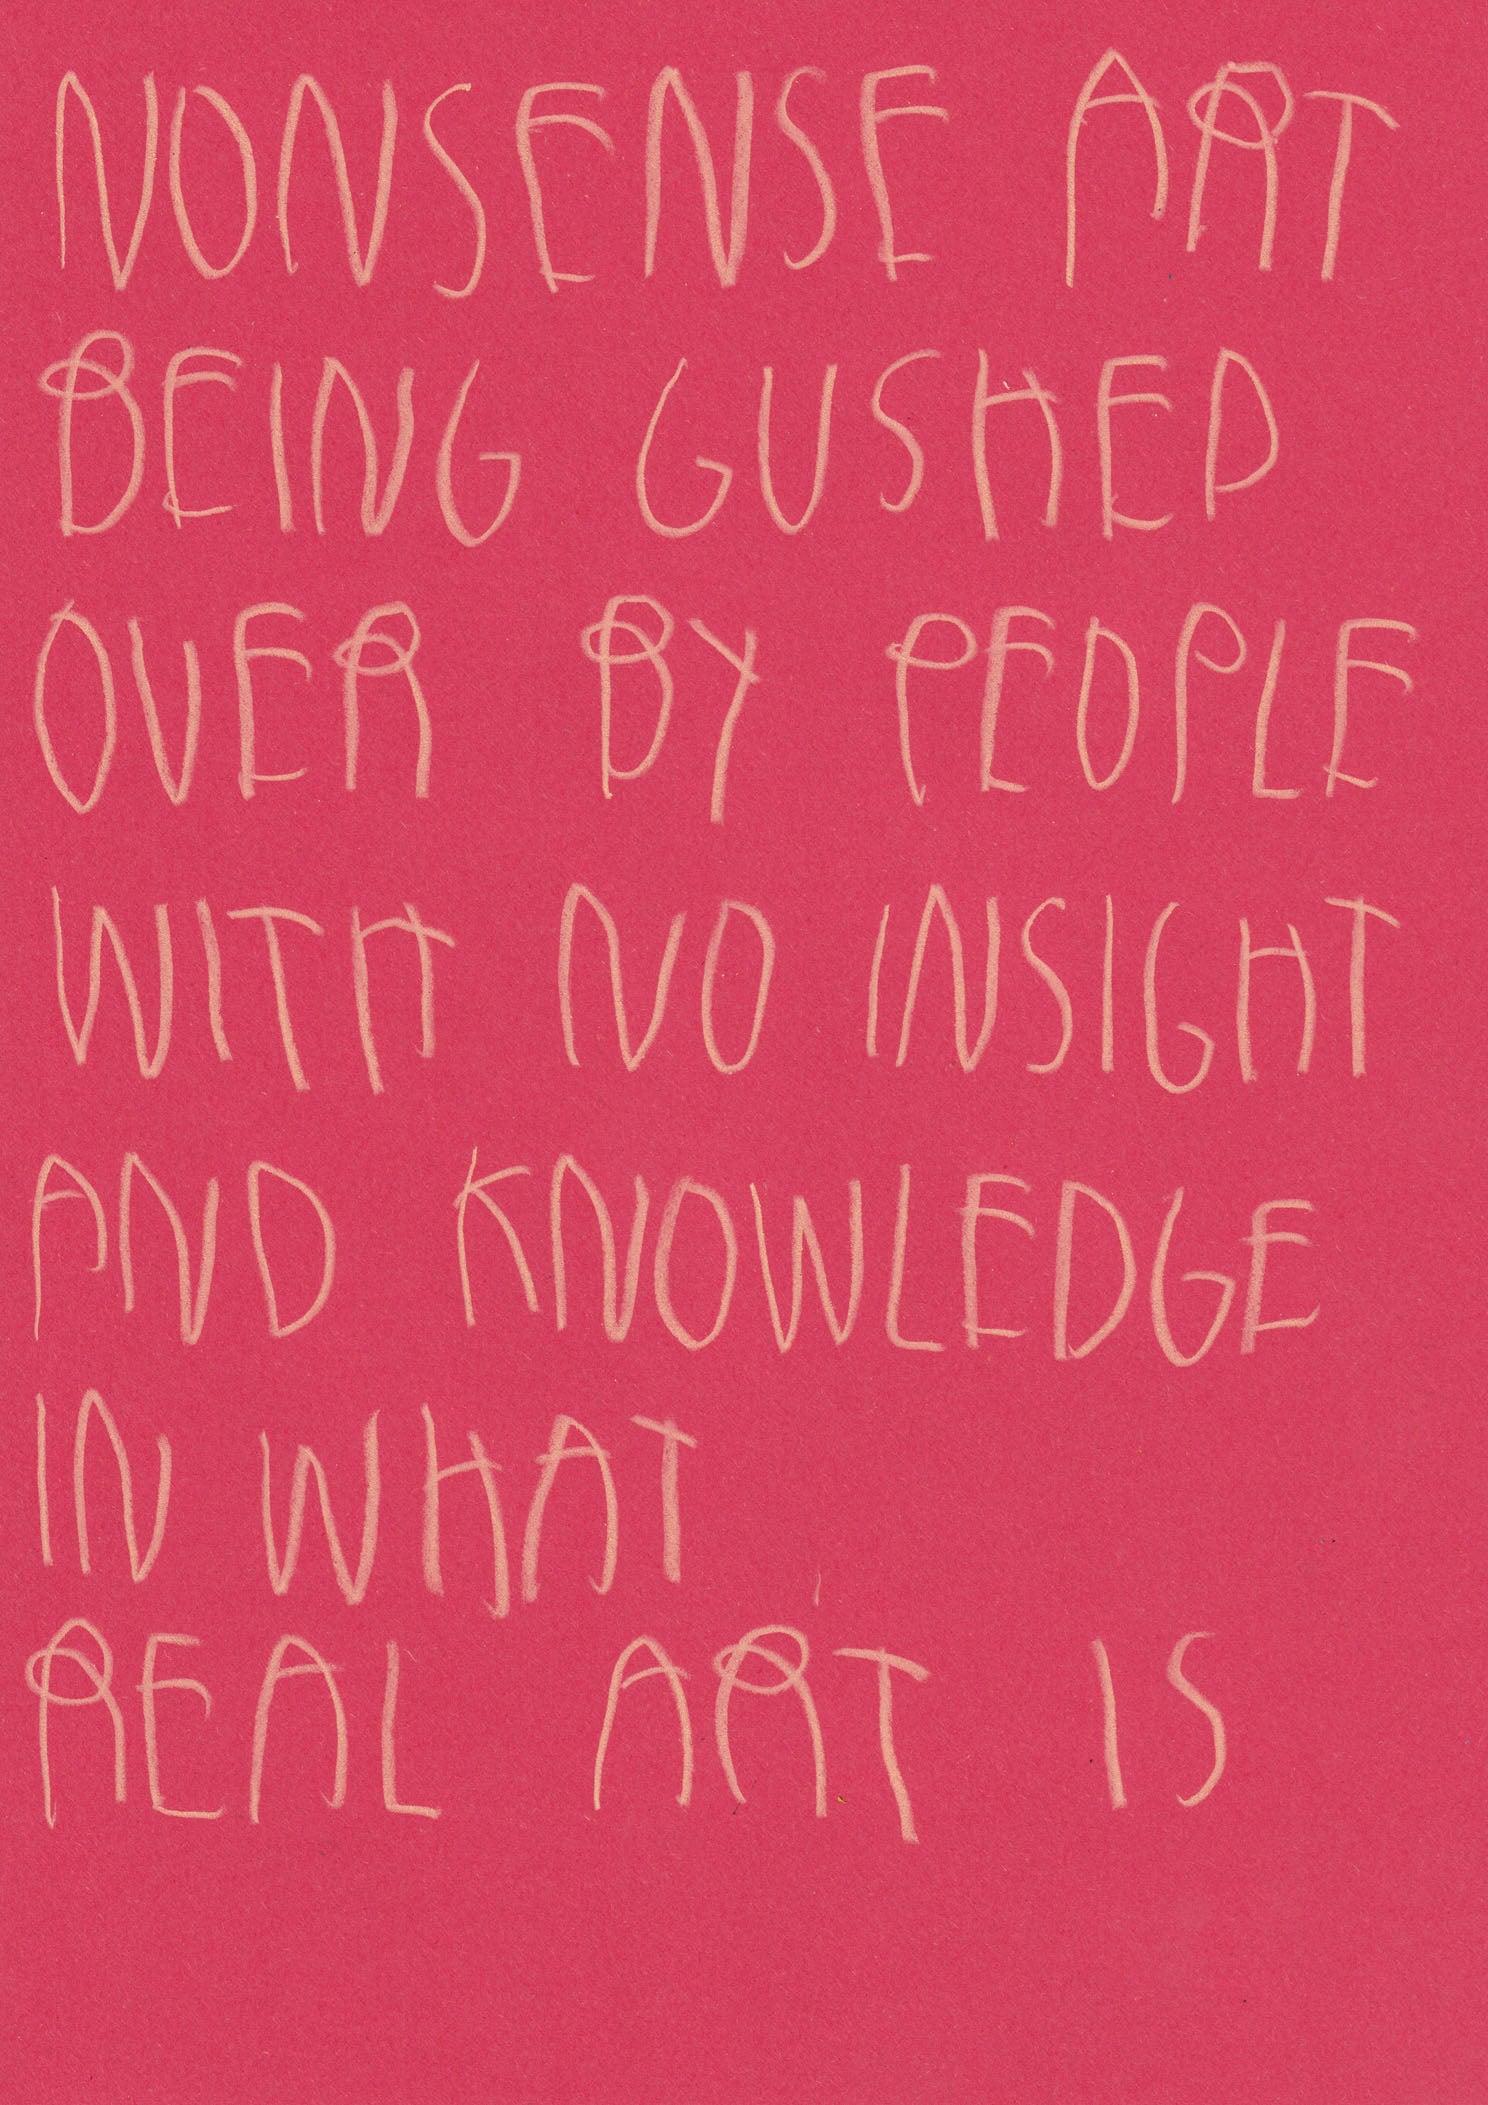 NONSENSE ART
BEING GUSHED
OVER BY PEOPLE
WITH NO INSIGHT
AND KNOWLEDGE
IN WHAT
REAL ART IS